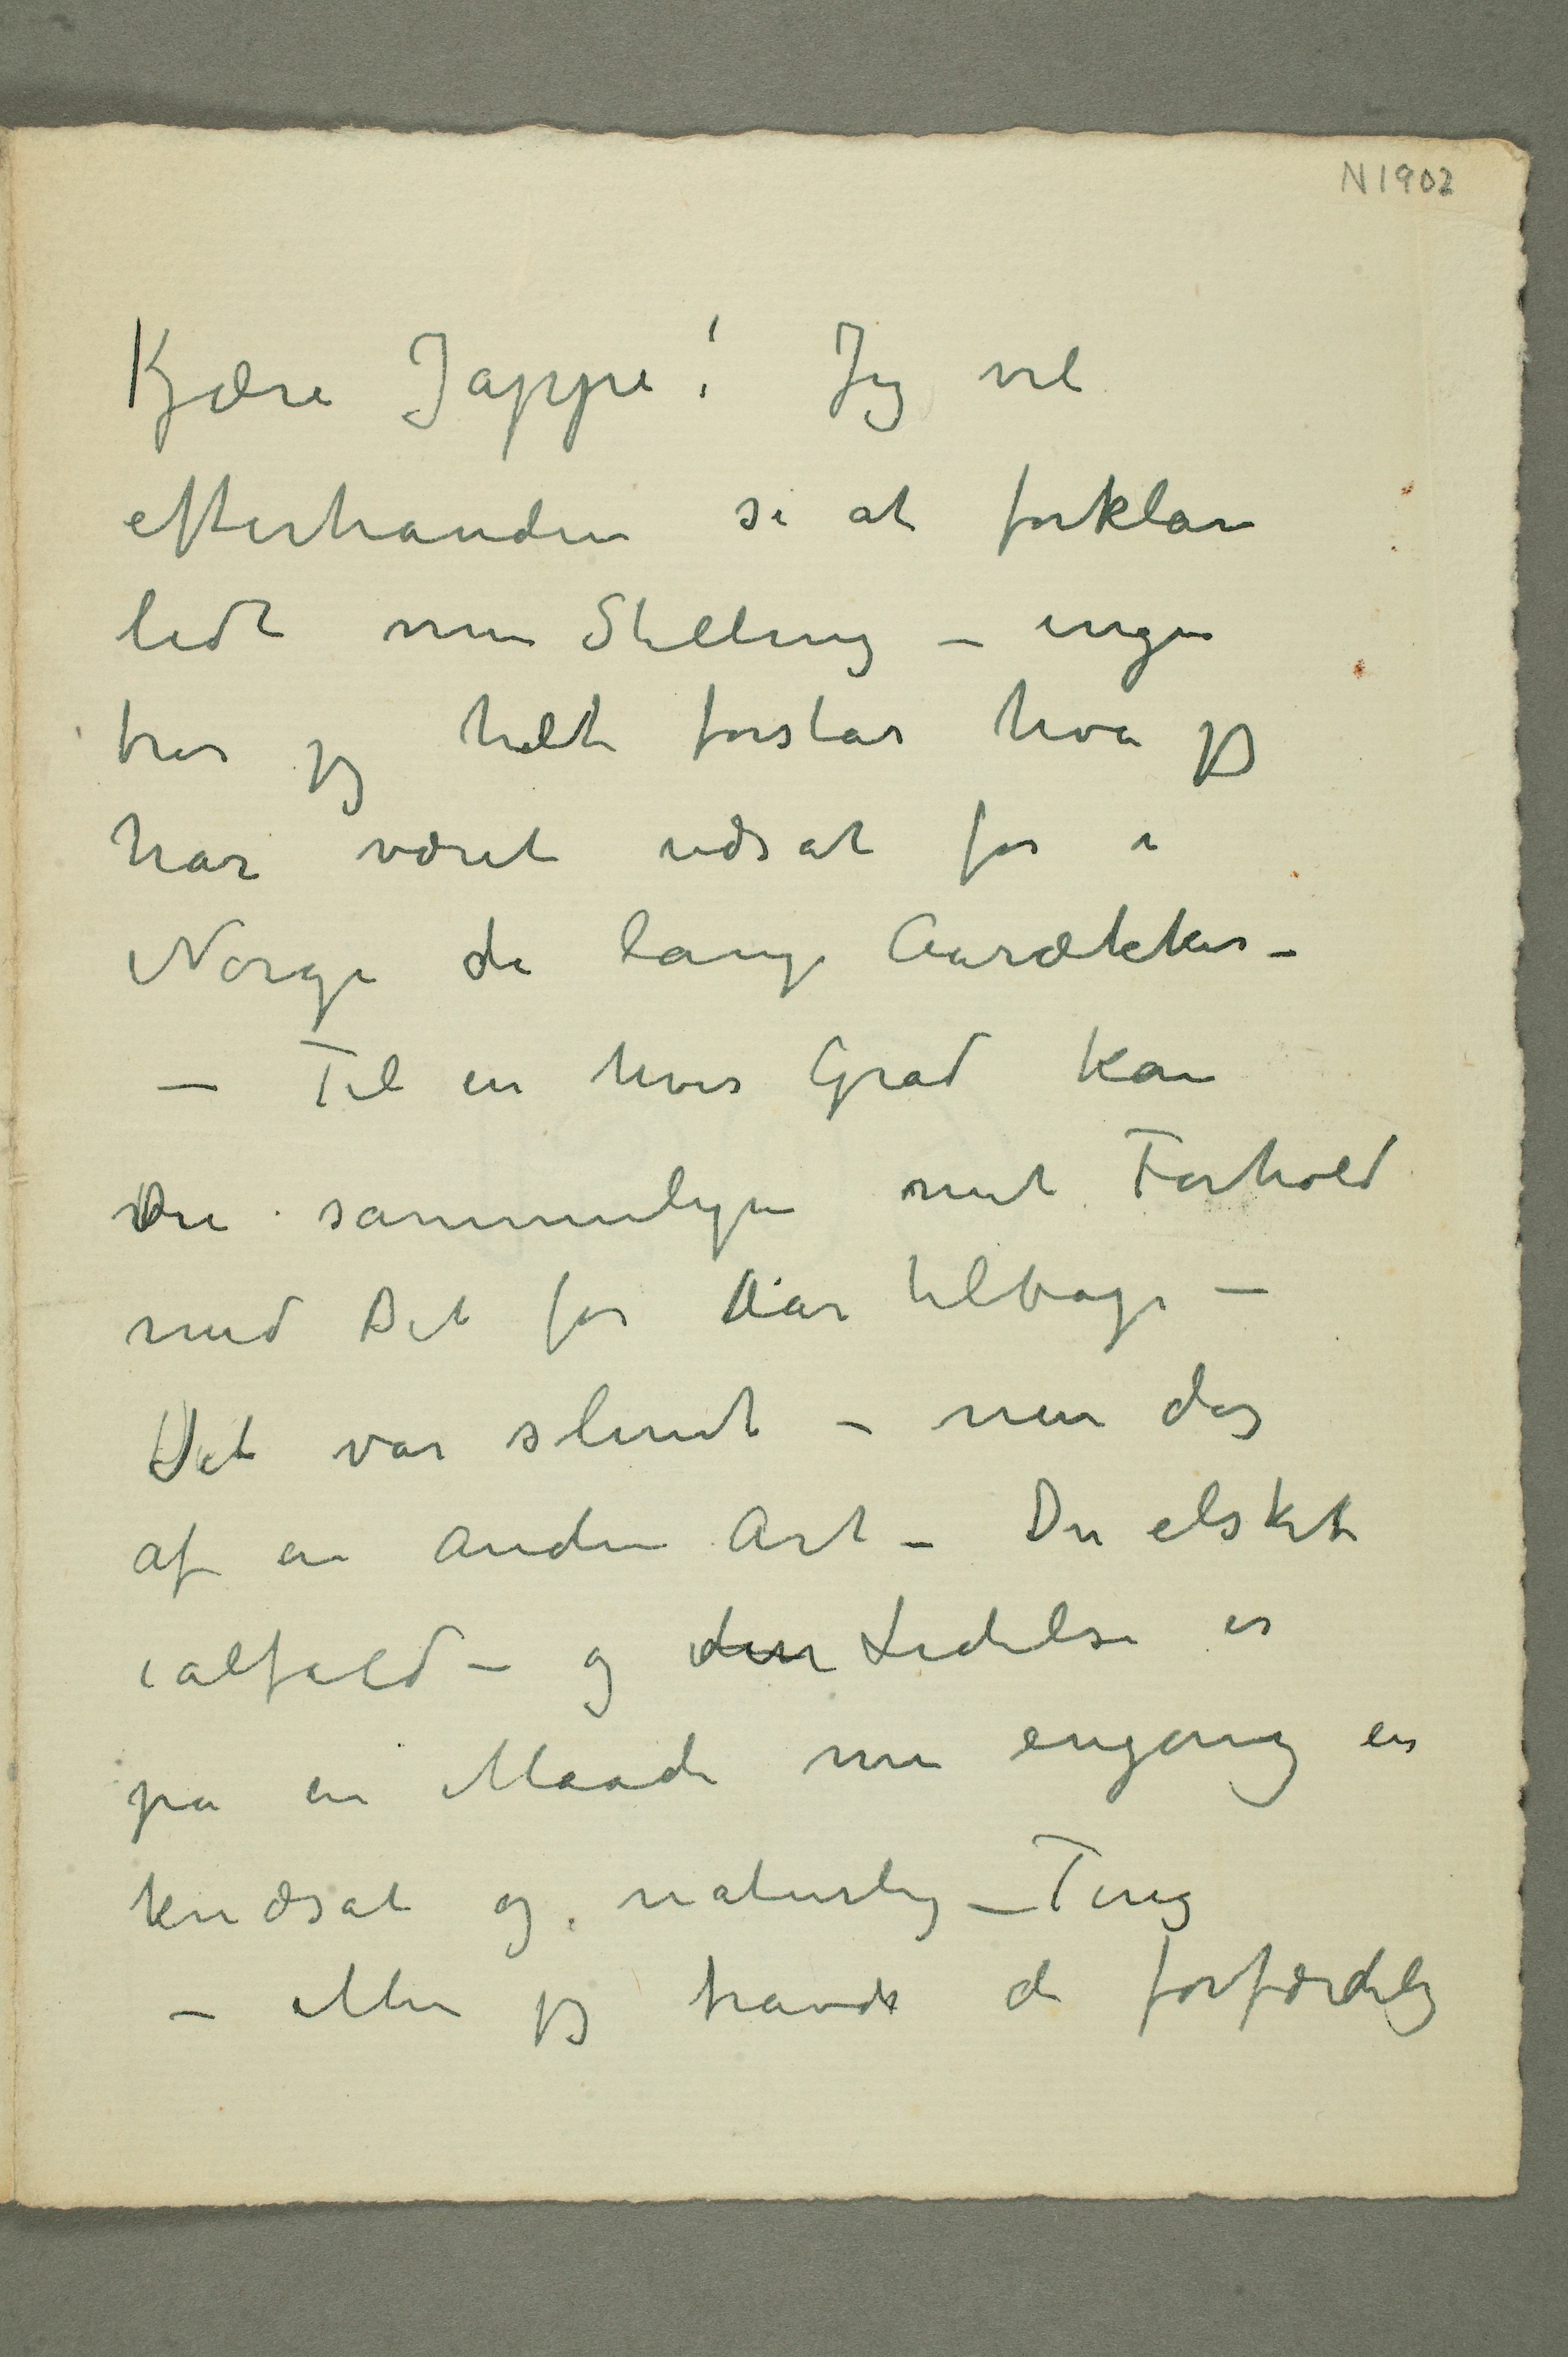 N 1902
Kjære Jappe! Jeg vil
efterhånden se at forklare
lidt min Stilling – ingen
tror jeg helt forstår hva jeg
har været udsat for i
Norge de lange Aarækker –
– Til en hvis Grad kan
Du sammenligne mit Forhold
med Det for Aar tilbage –
Det var slemt – men dog
af en anden Art – Du elsket
ialfald – og den Lidelse er
på en Maade nu engang en
knæsat og naturlig – Ting
– Men jeg havde de forfærdelig